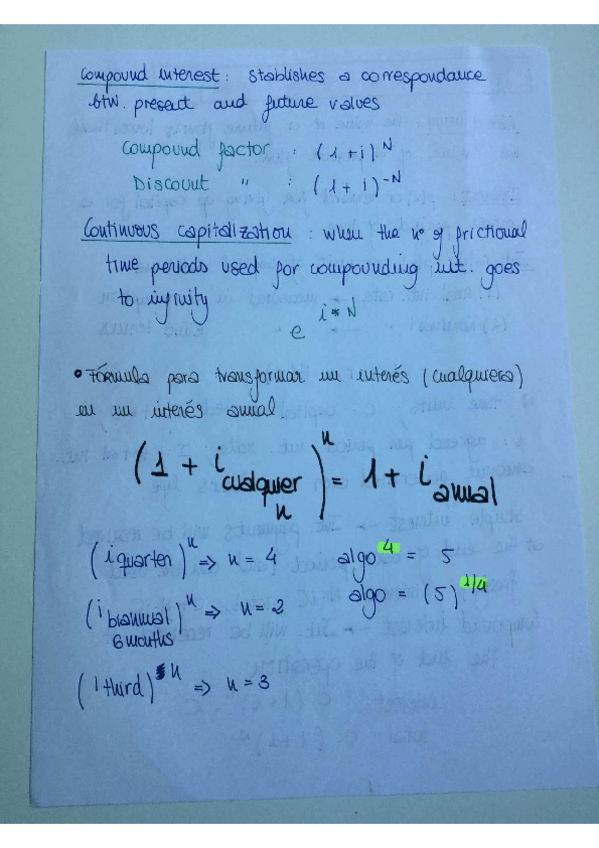 Compound interest: stablishes a correspondance
btw. present and future values
Compound factor : (1+i)^N
Discount " : (1+i)^-N
Continuous capitalization: when the nº of frictional
time periods used for compounding int. goes
to infinity
e^i*N
• Fórmula para transformar un interés (cualquiera)
en un interés anual
(1 + i cualquier n)^n = 1 + i anual
(i quarten)^n => n = 4 algo^4 = 5
(i biannual 6 months)^n => n = 2 algo = (5)^1/4
(i third)^n => n = 3